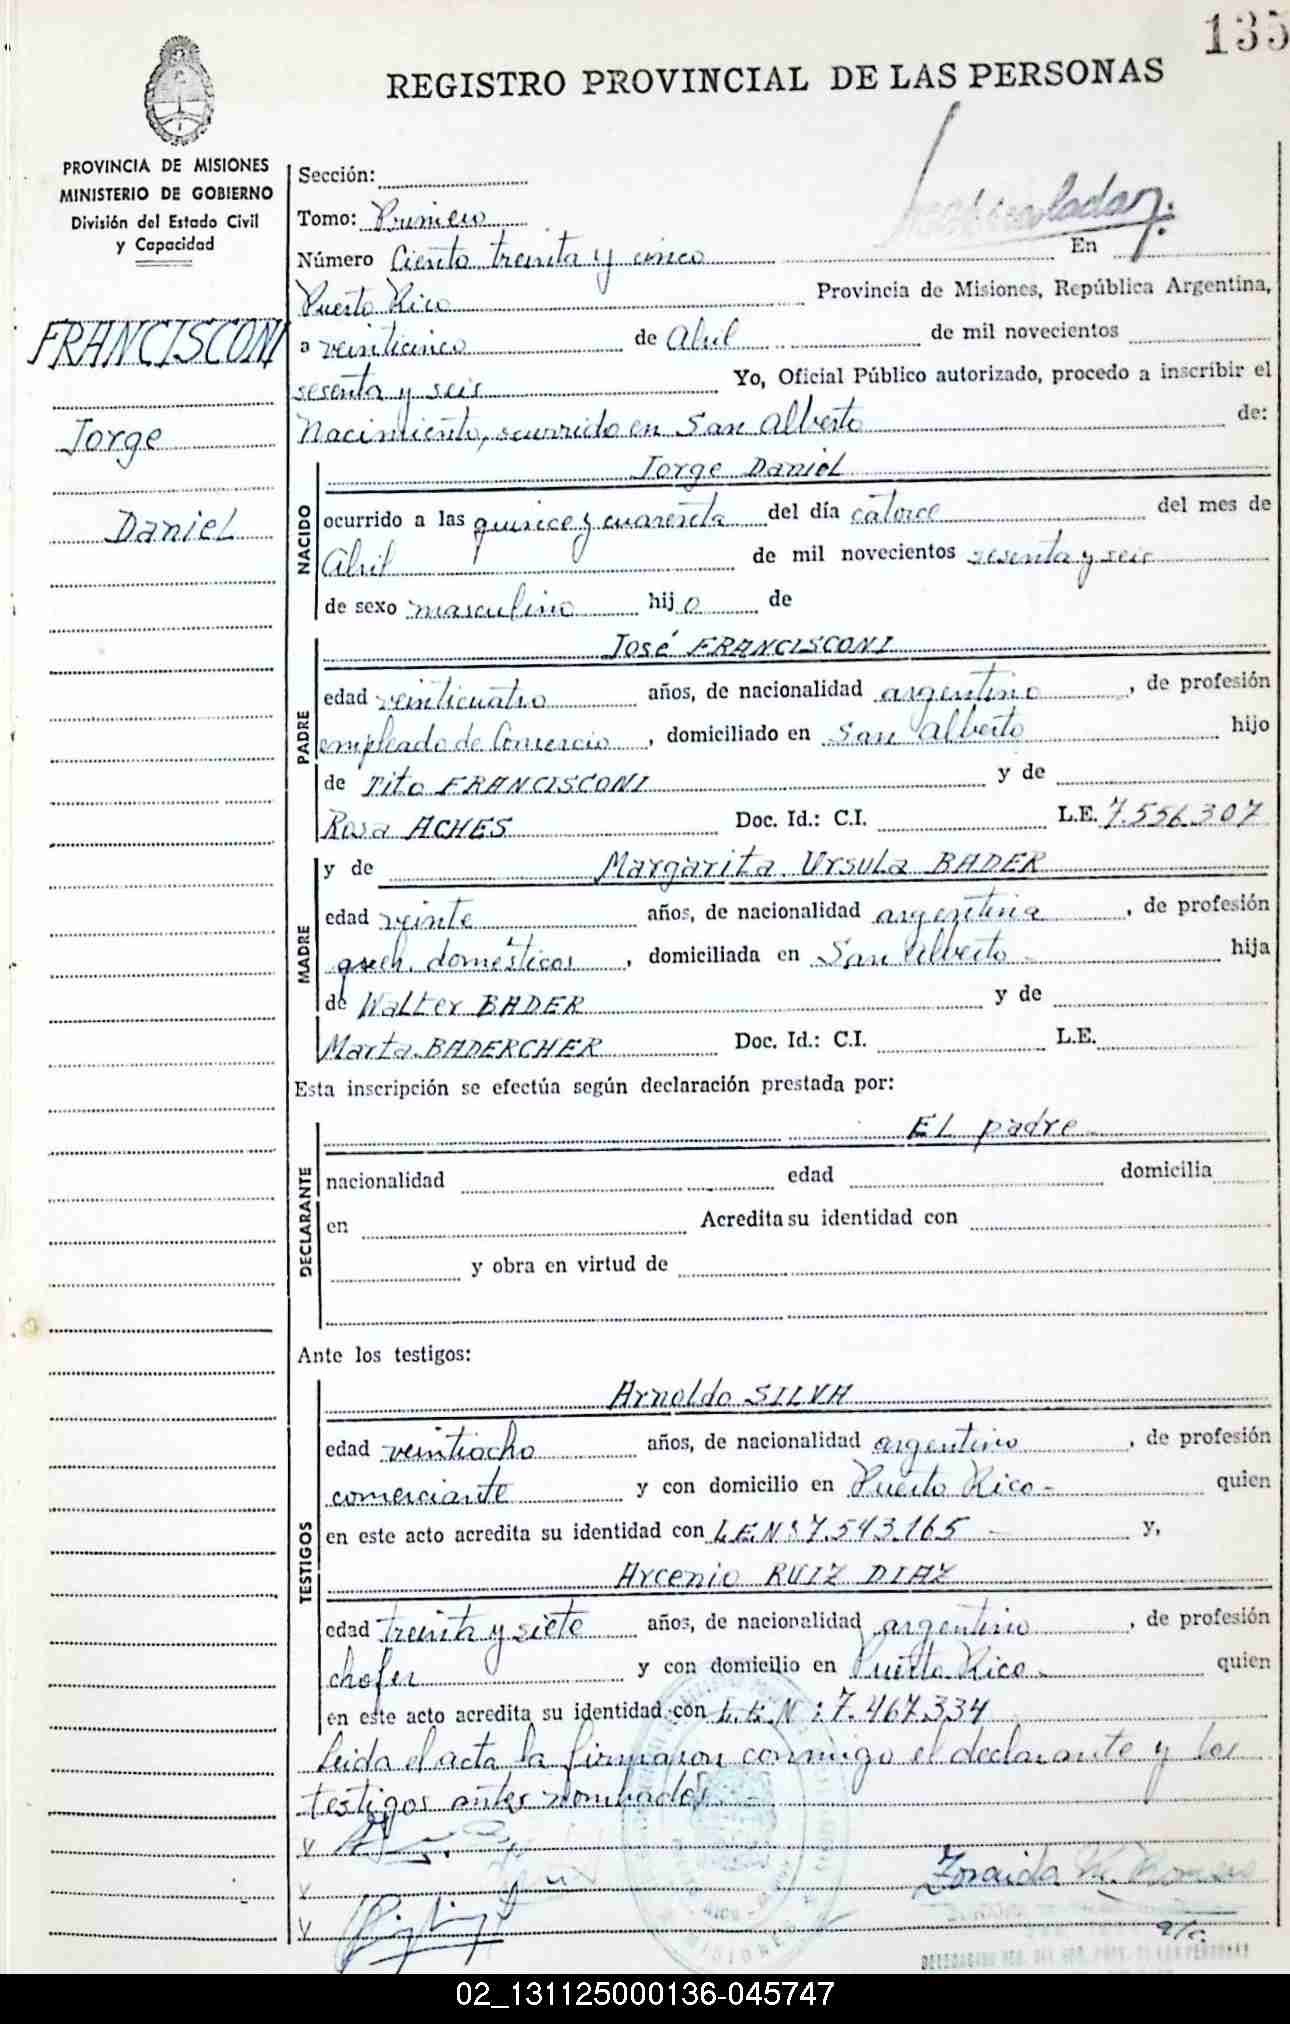 135
REGISTRO PROVINCIAL DE LAS PERSONAS
PROVINCIA DE MISIONES
MINISTERIO DE GOBIERNO
División del Estado Civil
y Capacidad
FRANCISCONI
Jorge
Daniel
Sección:
Tomo: Primero
Número Ciento treinta y cinco En
Puerto Rico Provincia de Misiones, República Argentina,
a veinticinco de Abril de mil novecientos
sesenta y seis Yo, Oficial Público autorizado, procedo a inscribir el
Nacimiento, ocurrido en San Alberto de:
NACIDO
Jorge Daniel
ocurrido a las quince y cuarenta del día catorce del mes de
Abril de mil novecientos sesenta y seis
de sexo masculino hijo de
PADRE
José FRANCISCONI
edad veinticuatro años, de nacionalidad argentino, de profesión
empleado de Comercio, domiciliado en San Alberto hijo
de Tito FRANCISCONI y de
Rosa ACHES Doc. Id.: C.I. L.E. 7.556.307
MADRE
y de Margarita Ursula BADER
edad veinte años, de nacionalidad argentina, de profesión
queh. domésticos, domiciliada en San Alberto - hija
de Walter BADER y de
Marta BADERCHER Doc. Id.: C.I. L.E.
Esta inscripción se efectúa según declaración prestada por:
DECLARANTE
El padre
nacionalidad edad domicilia
en Acredita su identidad con
y obra en virtud de
Ante los testigos:
TESTIGOS
Arnoldo SILVA
edad veintiocho años, de nacionalidad argentino, de profesión
comerciante y con domicilio en Puerto Rico - quien
en este acto acredita su identidad con L.E.Nº: 7.543.165 - y,
Arcenio RUIZ DIAZ
edad treinta y siete años, de nacionalidad argentino, de profesión
chofer y con domicilio en Puerto Rico - quien
en este acto acredita su identidad con L.E.N: 7.467.334
Leida el acta la firmaron conmigo el declarante y los
testigos antes nombrados
y
y Zoraida
y
02_131125000136-045747